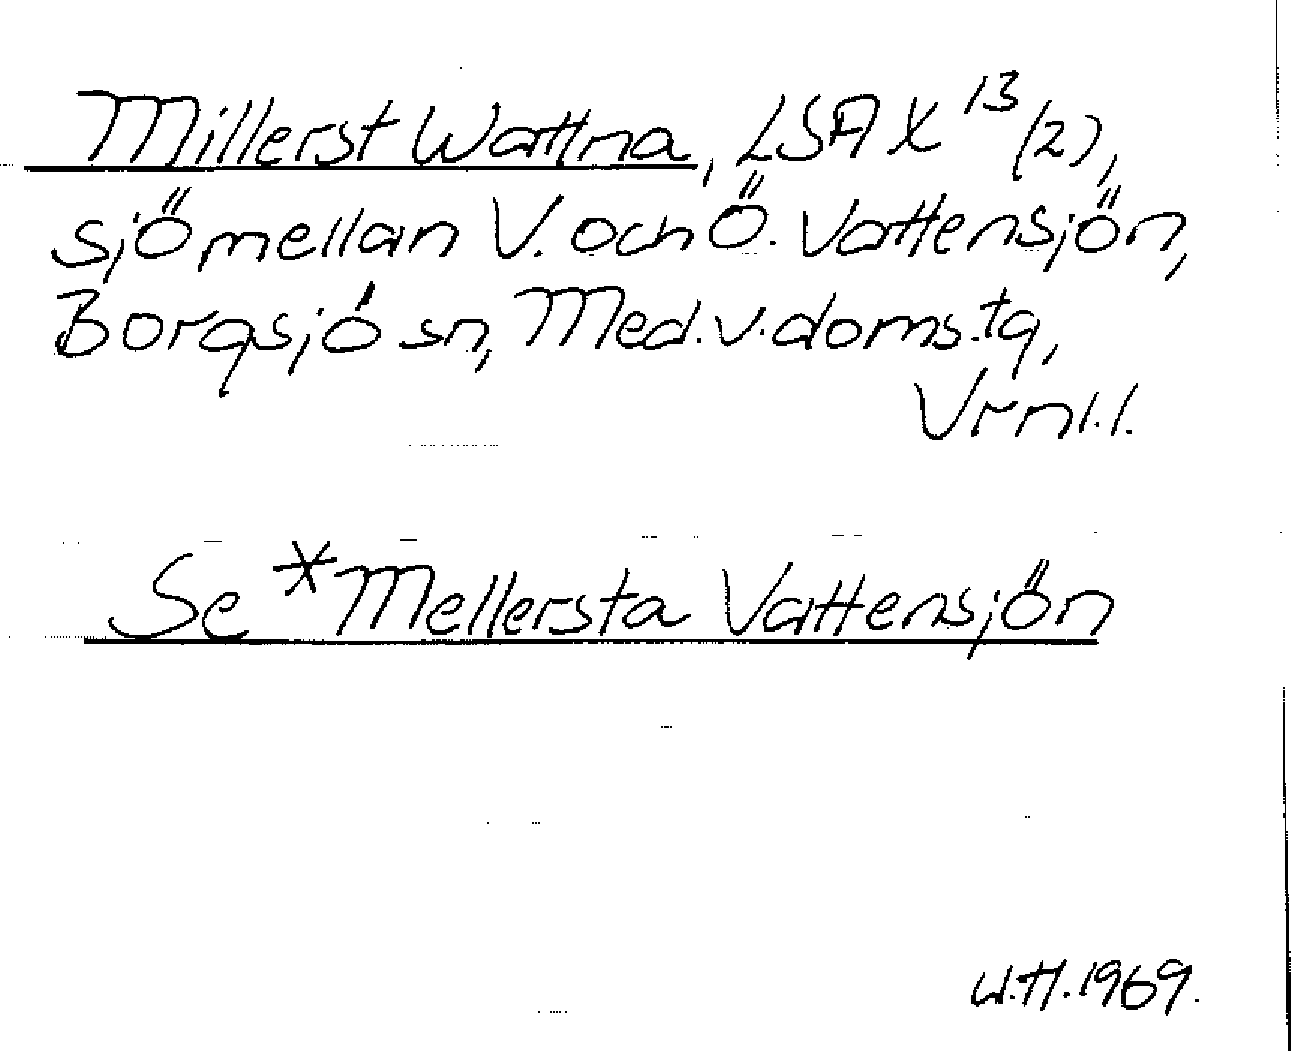 Millerst Wattna, LSA X 13 (2),
sjö mellan V. och Ö. Vattensjön,
Borgsjö sn, Med. v. doms.tg,
Vrnl.l.
Se *Mellersta Vattensjön
U.H. 1969.